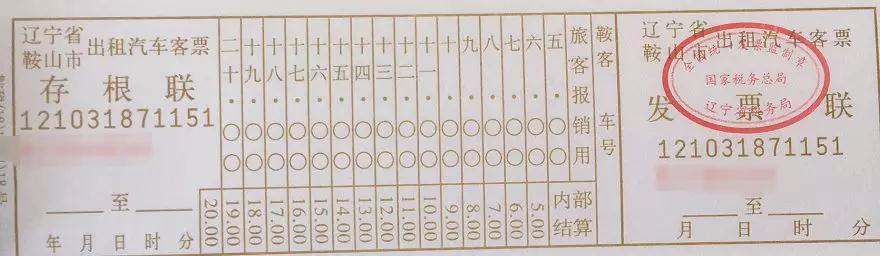 辽宁省
鞍山市
出租汽车客票
存根联
121031871151
至
年 月 日 时 分
二十·〇〇
十九·〇〇
十八·〇〇
十七·〇〇
十六·〇〇
十五·〇〇
十四·〇〇
十三·〇〇
十二·〇〇
十一·〇〇
十·〇〇
九·〇〇
八·〇〇
七·〇〇
六·〇〇
五·〇〇
旅客报销用
20.00
19.00
18.00
17.00
16.00
15.00
14.00
13.00
12.00
11.00
10.00
9.00
8.00
7.00
6.00
5.00
内部
结算
鞍客 车号
辽宁省
鞍山市
出租汽车客票
全国统一发票监制章
国家税务总局
辽宁省税务局
发票联
121031871151
至
月 日 时 分